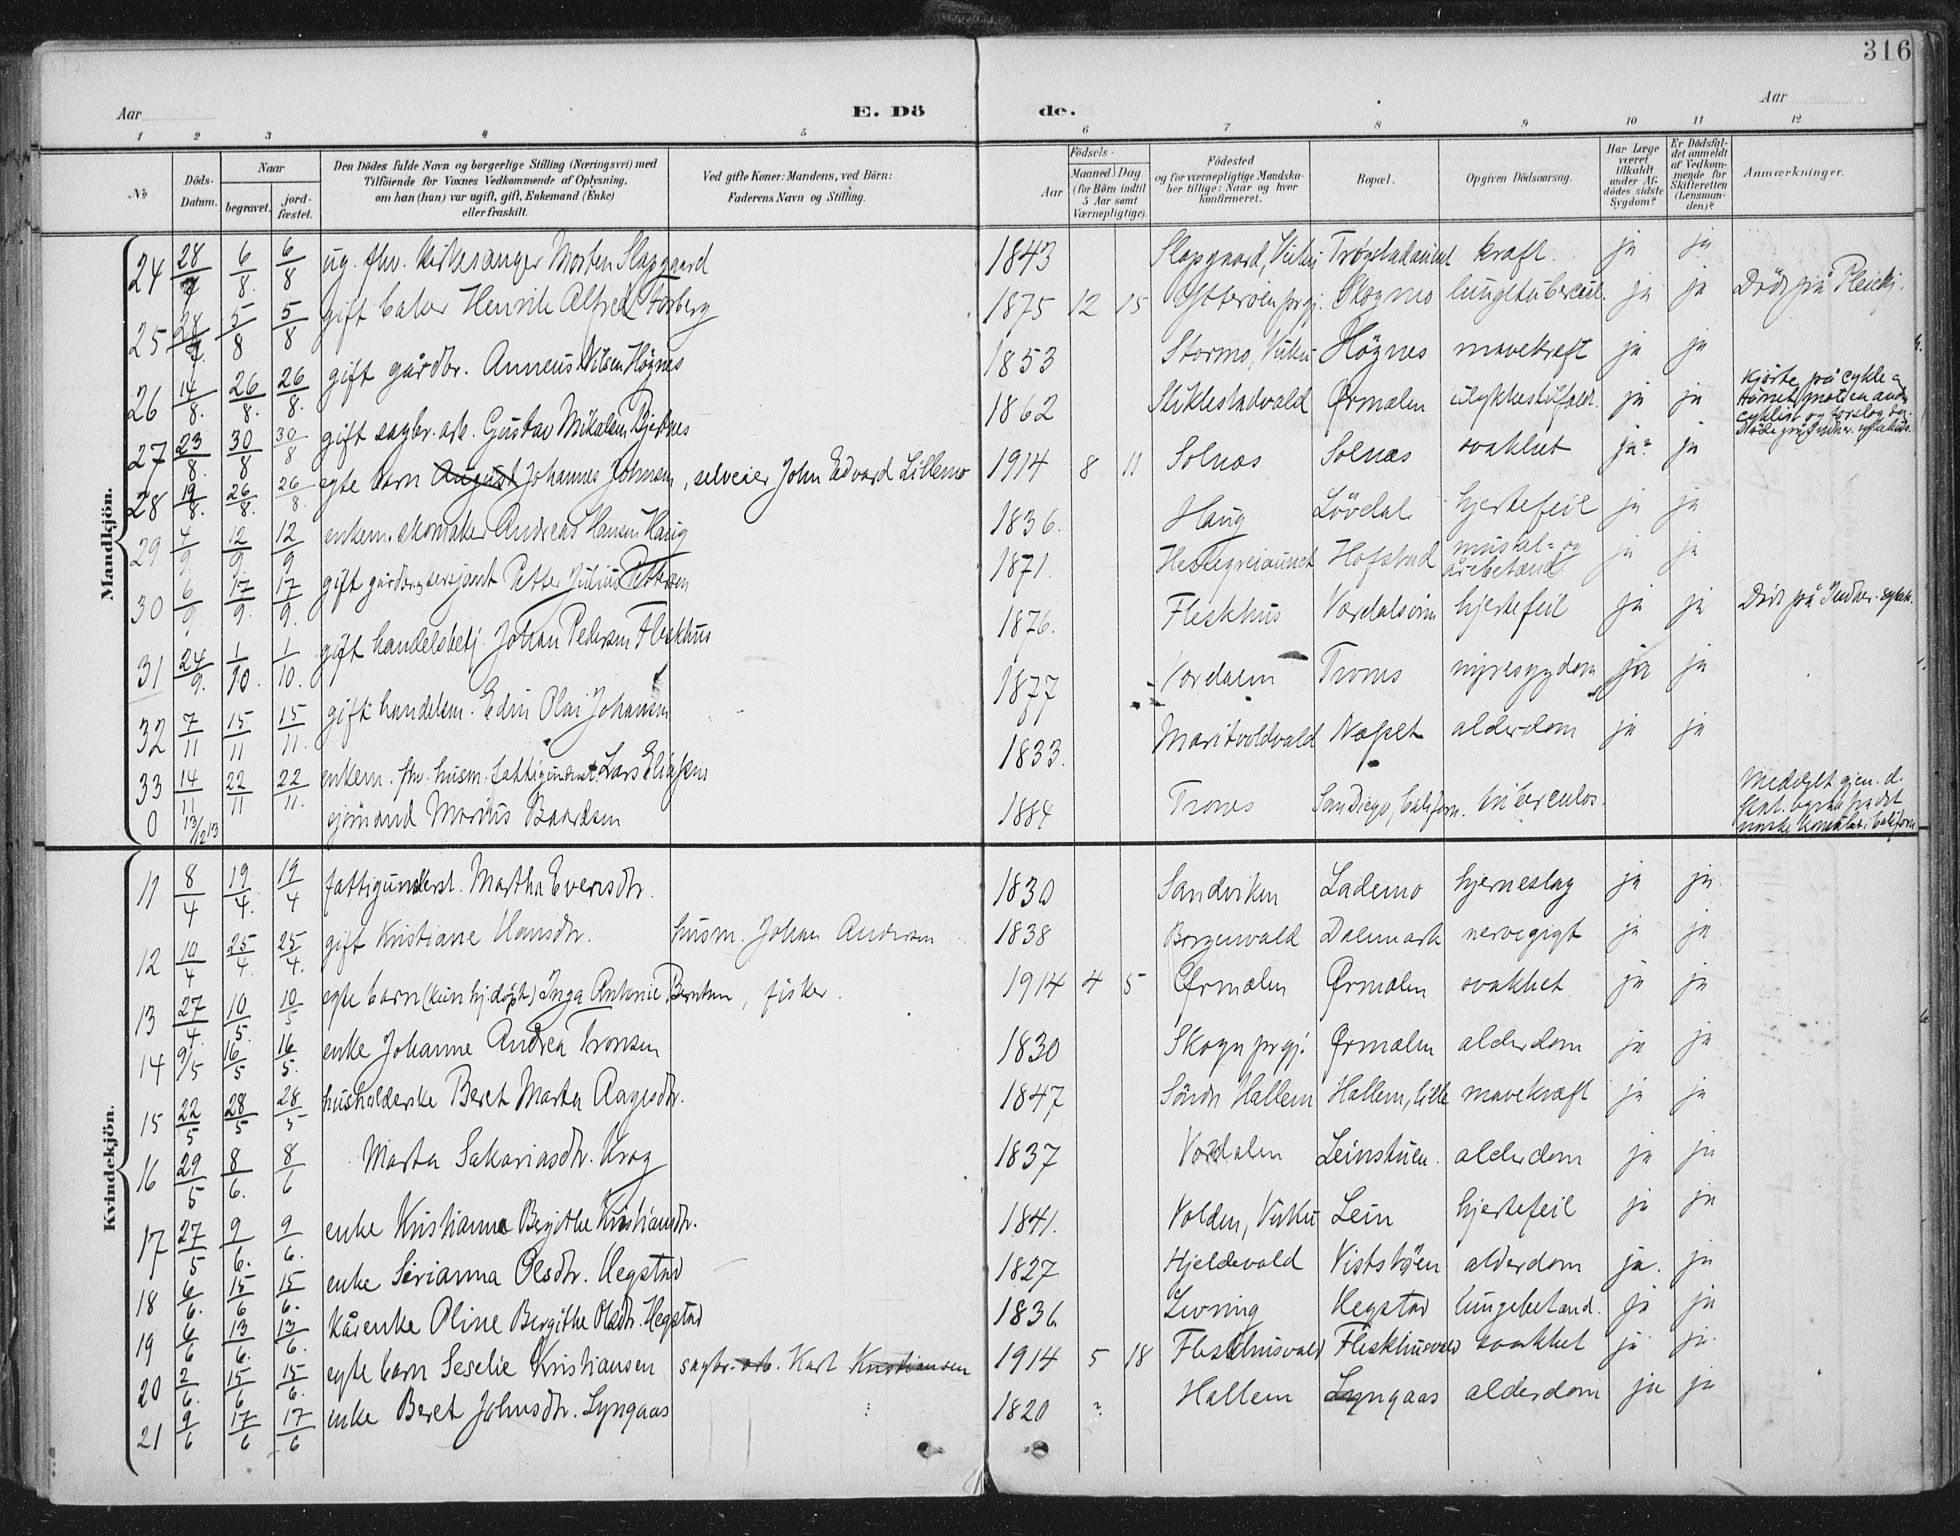 316
Aar E. Dö de. Aar
1 2 3 4 5 6 7 8 9 10 11 12
No
Döds-Datum.
Naar
begravet.
jord-fæstet.
Den Dödes fulde Navn og borgerlige Stilling (Næringsvei) med
Tilföiende for Voxnes Vedkommende af Oplysning,
om han (hun) var ugift, gift, Enkemand (Enke)
eller fraskilt.
Ved gifte Koner: Mandens, ved Börn:
Faderens Navn og Stilling.
Födsels-
Aar
Maaned Dag
(for Börn indtil
5 Aar samt
Værnepligtige).
Födested
og for værnepligtige Mandska-
ber tillige: Naar og hvor
konfirmeret.
Bopæl.
Opgiven Dödsaarsag.
Har Læge
været
tilkaldt
under Af-
dödes sidste
Sygdom?
Er Dödsfal-
det anmeldt
af Vedkom-
mende for
Skifteretten
(Lensman-
den)?
Anmærkninger.
Mandkjön.
24 28/7 6/8. 6/8 ug. fhv. kirkesanger Morten Slapgaard 1843 Slapgaard, Vuku kræft. ja ja
25 28/7 5/8 5/8 gift baker Henrik Alfred Forberg 1875 12 15 Ytterøen prgj. Skogmo lungetubercul. ja ja Död på
26 14/8. 26/8. 26/8. gift gårdbr. Anneus Nilsen Högnes 1853 Stormo, Vuku Högnes mavekræft ja ja
27 23/8. 30/8 30/8 gift sagbr. arb. Gustav Mikalsen Bjerknes 1862 Stiklestadvald Ørmælen ulykkestilfæld. ja ja kjørte på cykle
28 19/8. 26/8. 26/8. egte barn August Johannes Johnsen, selveier John Edvard Lillemo 1914 8 11 Solnæs Solnæs svakhet ja? ja
29 4/9. 12/9 12/9 enkem. skomaker Andreas Hansen Haug 1836. Haug Lövdal hjertefeil ja ja
30 6/9 17/9. 17/9. gift gårdbr. sersjant Petter Julius Pettersen 1871. Hofstad muskel- og årebetænd. ja ja
31 24/9. 1/10. 1/10. gift handelsbetj. Johan Pedersen Fleskhus 1876. Fleskhus Værdalsøren hjertefeil ja ja Död på Indher. sykeh.
32 7/11 15/11 15/11. gift handelsm. Edin Olai Johansen 1877 Værdalen Trones nyresygdom ja ja
33 14/11 22/11 22/11. enkem. fhv. husm. fattigunderst. Lars Eliassen 1833. Maritvoldvald Næpet alderdom ja ja
0 13/12 13 sjömand Marius Baardsen 1884 Trones San Diego, Californ. tuberculos. Meddelt gjen. d.
Kvindekjön.
11 8/4 19/4. 19/4 fattigunderst. Martha Evensdtr. 1830 Sandviken Lademo hjerneslag ja ja
12 10/4 25/4. 25/4. gift Kristiane Hansdtr. husm. Johan Andersen 1838 Borgenvald Dalemark nervegigt ja ja
13 27/4. 10/5. 10/5 egte barn (kun hj.döpt) Inga Antonie Berntsen, fisker. 1914 4 5 Ørmælen Ørmælen svakhet ja ja
14 9/5 16/5 16/5. enke Johanne Andrea Tronsen 1830 Skogn prgj. Ørmælen alderdom ja ja
15 22/5 28/5 28/5 husholderske Beret Marta Aagesdtr. 1847 Söndr Hallem Hallem, lille mavekræft ja ja
16 29/5 8/6. 8/6 Marta Sakariasdtr. Krog 1837 Værdalen Leinstuen. alderdom ja ja
17 27/5 9/6. 9/6. enke Kristianna Bergithe Kristiansdtr. 1841. Volden, Vuku Lein hjertefeil ja ja
18 6/6. 15/6 15/6. enke Serianna Olsdtr. Hegstad 1827 Hjeldevald alderdom ja. ja
19 6/6 13/6. 13/6. Kårenke Oline Bergithe Olsdtr. Hegstad 1836. Levring Hegstad lungebetænd. ja ja
20 2/6. 15/6 15/6. egte barn Seselie Kristiansen sagbr. arb. Karl Kristiansen 1914 5 18 Fleskhusvald Fleskhusvald svakhet ja ja
21 9/6 17/6 17/6 enke Beret Johnsdtr. Lyngaas 1820 ? Hallem Lyngaas alderdom ja ja